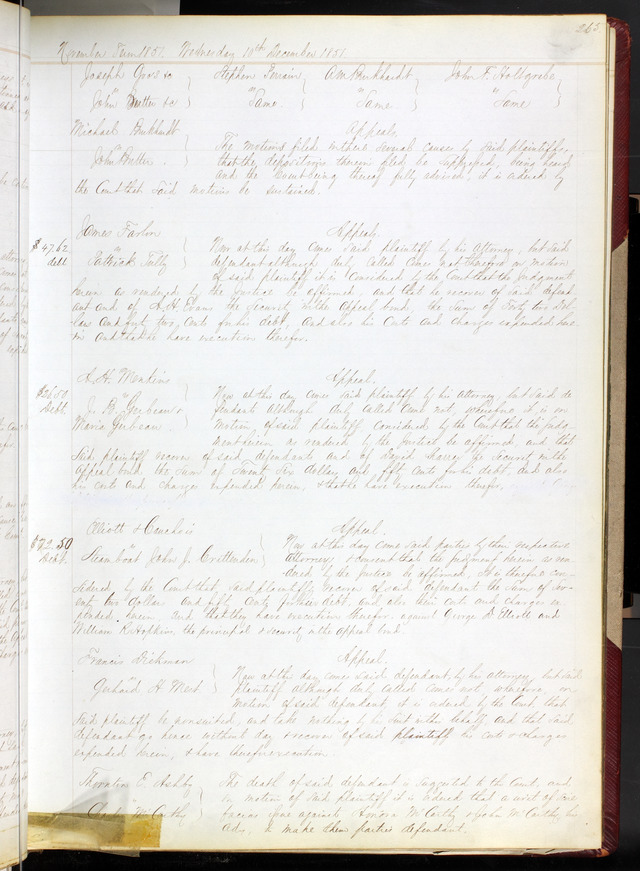 265
November Term 1851. Wednesday 10th December 1851
Joseph Gross &c } Stephen } A M Burkhardt } John F. Holtgrebe }
vs
John Sutter &c } "Same } "Same } "Same }
Michael Burkhardt } Appeal.
vs The motions filed without several causes by said plaintiffs,
John Sutter that the depositions therein filed be suppressed, being heard
and the Court being thereof fully advised, it is ordered by
the Court that said motions be sustained.
James Farlin } Appeal.
$47.62 vs Now at this day comes said plaintiff by his attorney, but said
debt Patrick Tully defendant although duly called comes not therefore on motion
of said plaintiff it is considered by the Court that the judgment
herein as rendered by the justice be affirmed, and that he recover of said defend-
ant and of A. H. Evans the security in the appeal bond, the sum of Forty Dol-
lars and Sixty two Cents for his debt, and also his costs and charges expended here-
in and that he have execution therefor.
A. H. Menkins } Appeal.
$26.50 vs Now at this day comes said plaintiff by his attorney, but said de-
Debt. J. B. Gerbeau & fendants although duly called came not, wherefore it is on
Maria Gerbeau motion of said plaintiff considered by the Court that the judg-
ment herein as rendered by the justice be affirmed and that
said plaintiff recover of said defendants and of David security in the
appeal bond the sum of Twenty Six dollars and fifty cents for his debt and also
his costs and charges expended herein, & that he have execution therefor.
Elliott & } Appeal.
$72.50 vs Now at this day come said parties by their respective
Debt. Steamboat John J. Crittenden attorneys & consent that the judgment herein as ren-
dered by the justice be affirmed, it is therefore con-
sidered by the Court that said plaintiffs recover of said defendant the sum of Sev-
enty two dollars and fifty Cents for their debt and also their costs and charges ex-
pended herein, and that they have execution therefor against George D. Elliott and
William K. Hopkins, the principal & security in the appeal bond.
Francis Dickman } Appeal.
vs Now at this day comes said defendant by his attorney, but said
Gerhard H. Meest plaintiff although duly called comes not, wherefore, on
motion of said defendant, it is ordered by the Court, that
said plaintiff be nonsuited, and take nothing by his suit in this behalf, and that said
defendant go hence without day & recover of said plaintiff his costs & charges
expended herein, & have therefor execution.
Thornton E. Ashby } The death of said defendant is suggested to the Court, and
vs on motion of said plaintiff it is ordered that a writ of scire
Charles McCarthy facias issue against Honora McCarthy & John McCarthy, his
Adrs, to make them parties defendant.